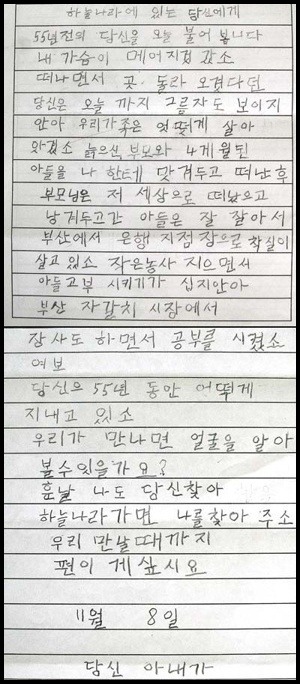 하늘나라에 있는 당신에게
55년전의 당신을 오늘 불어 봅니다
내 가슴이 메어지겄 같소
떠나면서 곳 돌라 오겠다던
당신은 오늘 까지 그름자도 보이지
안아 우리가족은 엇떻게 살아
왔겠소 늙으신 부모와 4개월된
아들을 나 한테 맞겨두고 떠난후
부모님은 저 세상으로 떠났으고
남겨두고간 아들은 잘 잘아서
부산에서 은행 지점장으로 착실이
살고 있소 작은농사 지으면서
아들고부 시키기가 십지안아
부산 자갈치 시장에서
장사도 하면서 공부를 시켰소
여보
당신으 55년 동안 어떻게
지내고 있소
우리가 만나면 얼굴을 알아
볼수있을가요?
훗날 나도 당신찾아
하늘나라가면 나를찾아 주소
우리 만날때까지
편이 게싶시요
11월 8일
당신 아내가